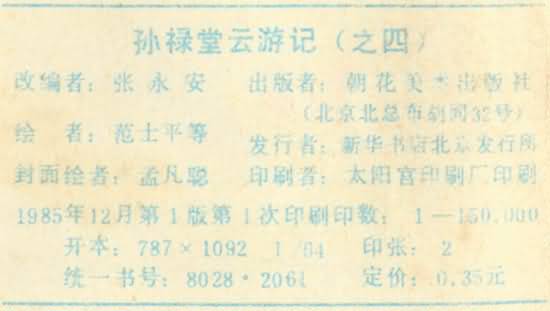 孙禄堂云游记（之四）
改编者：张永安 出版者：朝花美术出版社
（北京北总布胡同32号）
绘 者：范士平等 发行者：新华书店北京发行所
封面绘者：孟凡聪 印刷者：太阳宫印刷厂印刷
1985年12月第1版第1次印刷印数：1—150,000
开本：787×1092 1/64 印张：2
统一书号：8028·2061 定价：0.35元